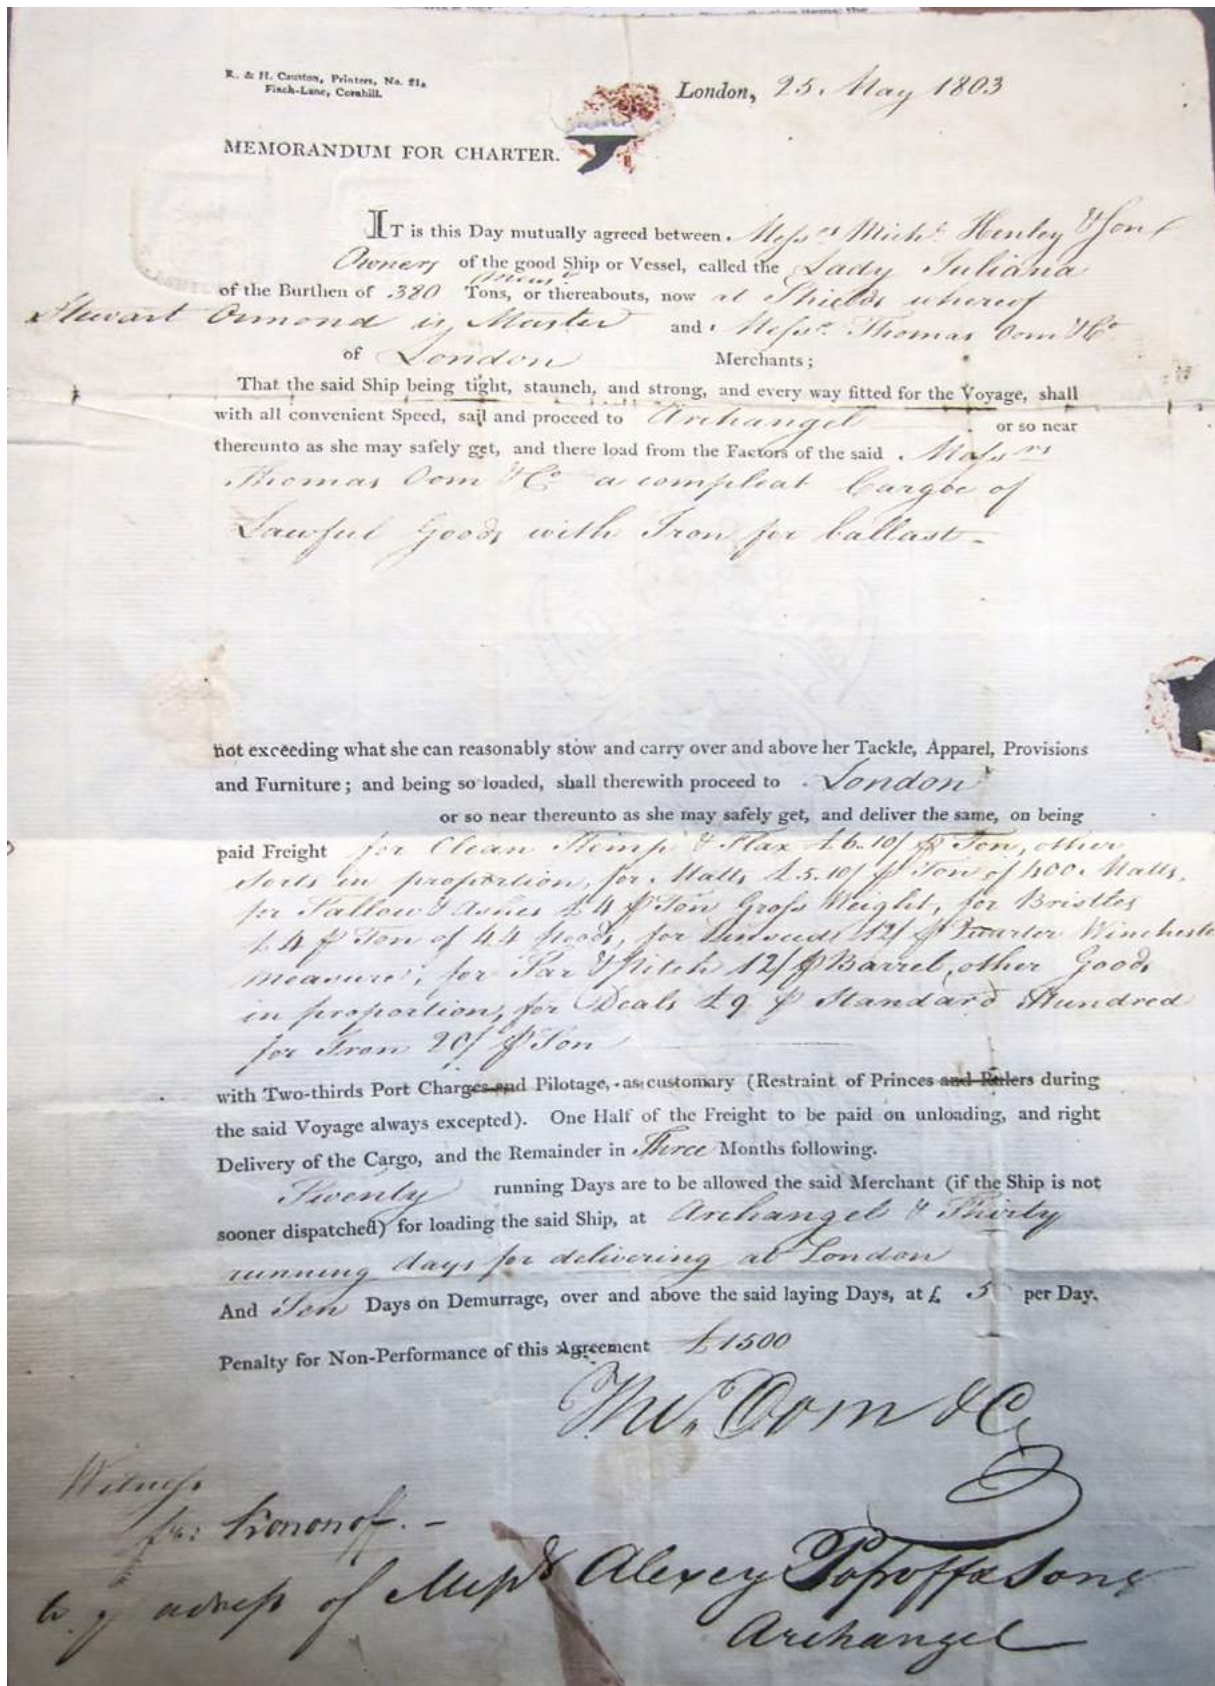 R. & H. Causton, Printers, No. 21,
Finch-Lane, Cornhill.
London, 25. May 1803
MEMORANDUM FOR CHARTER.
IT is this Day mutually agreed between Messrs Michl Henley & Son
Owners of the good Ship or Vessel, called the Lady Juliana
of the Burthen of 380 Tons, or thereabouts, now at Shields whereof
Stewart Ormond is Master and Messrs. Thomas Oom & Co
of London Merchants;
That the said Ship being tight, staunch, and strong, and every way fitted for the Voyage, shall
with all convenient Speed, sail and proceed to Archangel or so near
thereunto as she may safely get, and there load from the Factors of the said Messrs
Thomas Oom & Co a compleat Cargoe of
Lawful Goods with Iron for ballast -
not exceeding what she can reasonably stow and carry over and above her Tackle, Apparel, Provisions
and Furniture; and being so loaded, shall therewith proceed to London
or so near thereunto as she may safely get, and deliver the same, on being
paid Freight for Clean Hemp & Flax £6.10/ ⅌ Ton, other
Sorts in proportion, for Matts £5.10/ ⅌ Ton of 400 Matts,
for Tallow & Ashes £4 ⅌ Ton Gross Weight, for Bristles
£4 ⅌ Ton of 44 Poods, for Linseed 12/ ⅌ Quarter Winchester
measure; for Tar & Pitch 12/ ⅌ Barrel, other Goods
in proportion, for Deals £9 ⅌ Standard Hundred
for Iron 20/ ⅌ Ton
with Two-thirds Port Charges and Pilotage, as customary (Restraint of Princes and Rulers during
the said Voyage always excepted). One Half of the Freight to be paid on unloading, and right
Delivery of the Cargo, and the Remainder in Three Months following.
Twenty running Days are to be allowed the said Merchant (if the Ship is not
sooner dispatched) for loading the said Ship, at Archangel & Thirty
running days for delivering at London
And Ten Days on Demurrage, over and above the said laying Days, at £ 5 per Day.
Penalty for Non-Performance of this Agreement £1500
Thos. Oom & Co
Witness
Kononoff. -
adress of Messrs Alexey Popoff & Sons
Archangel